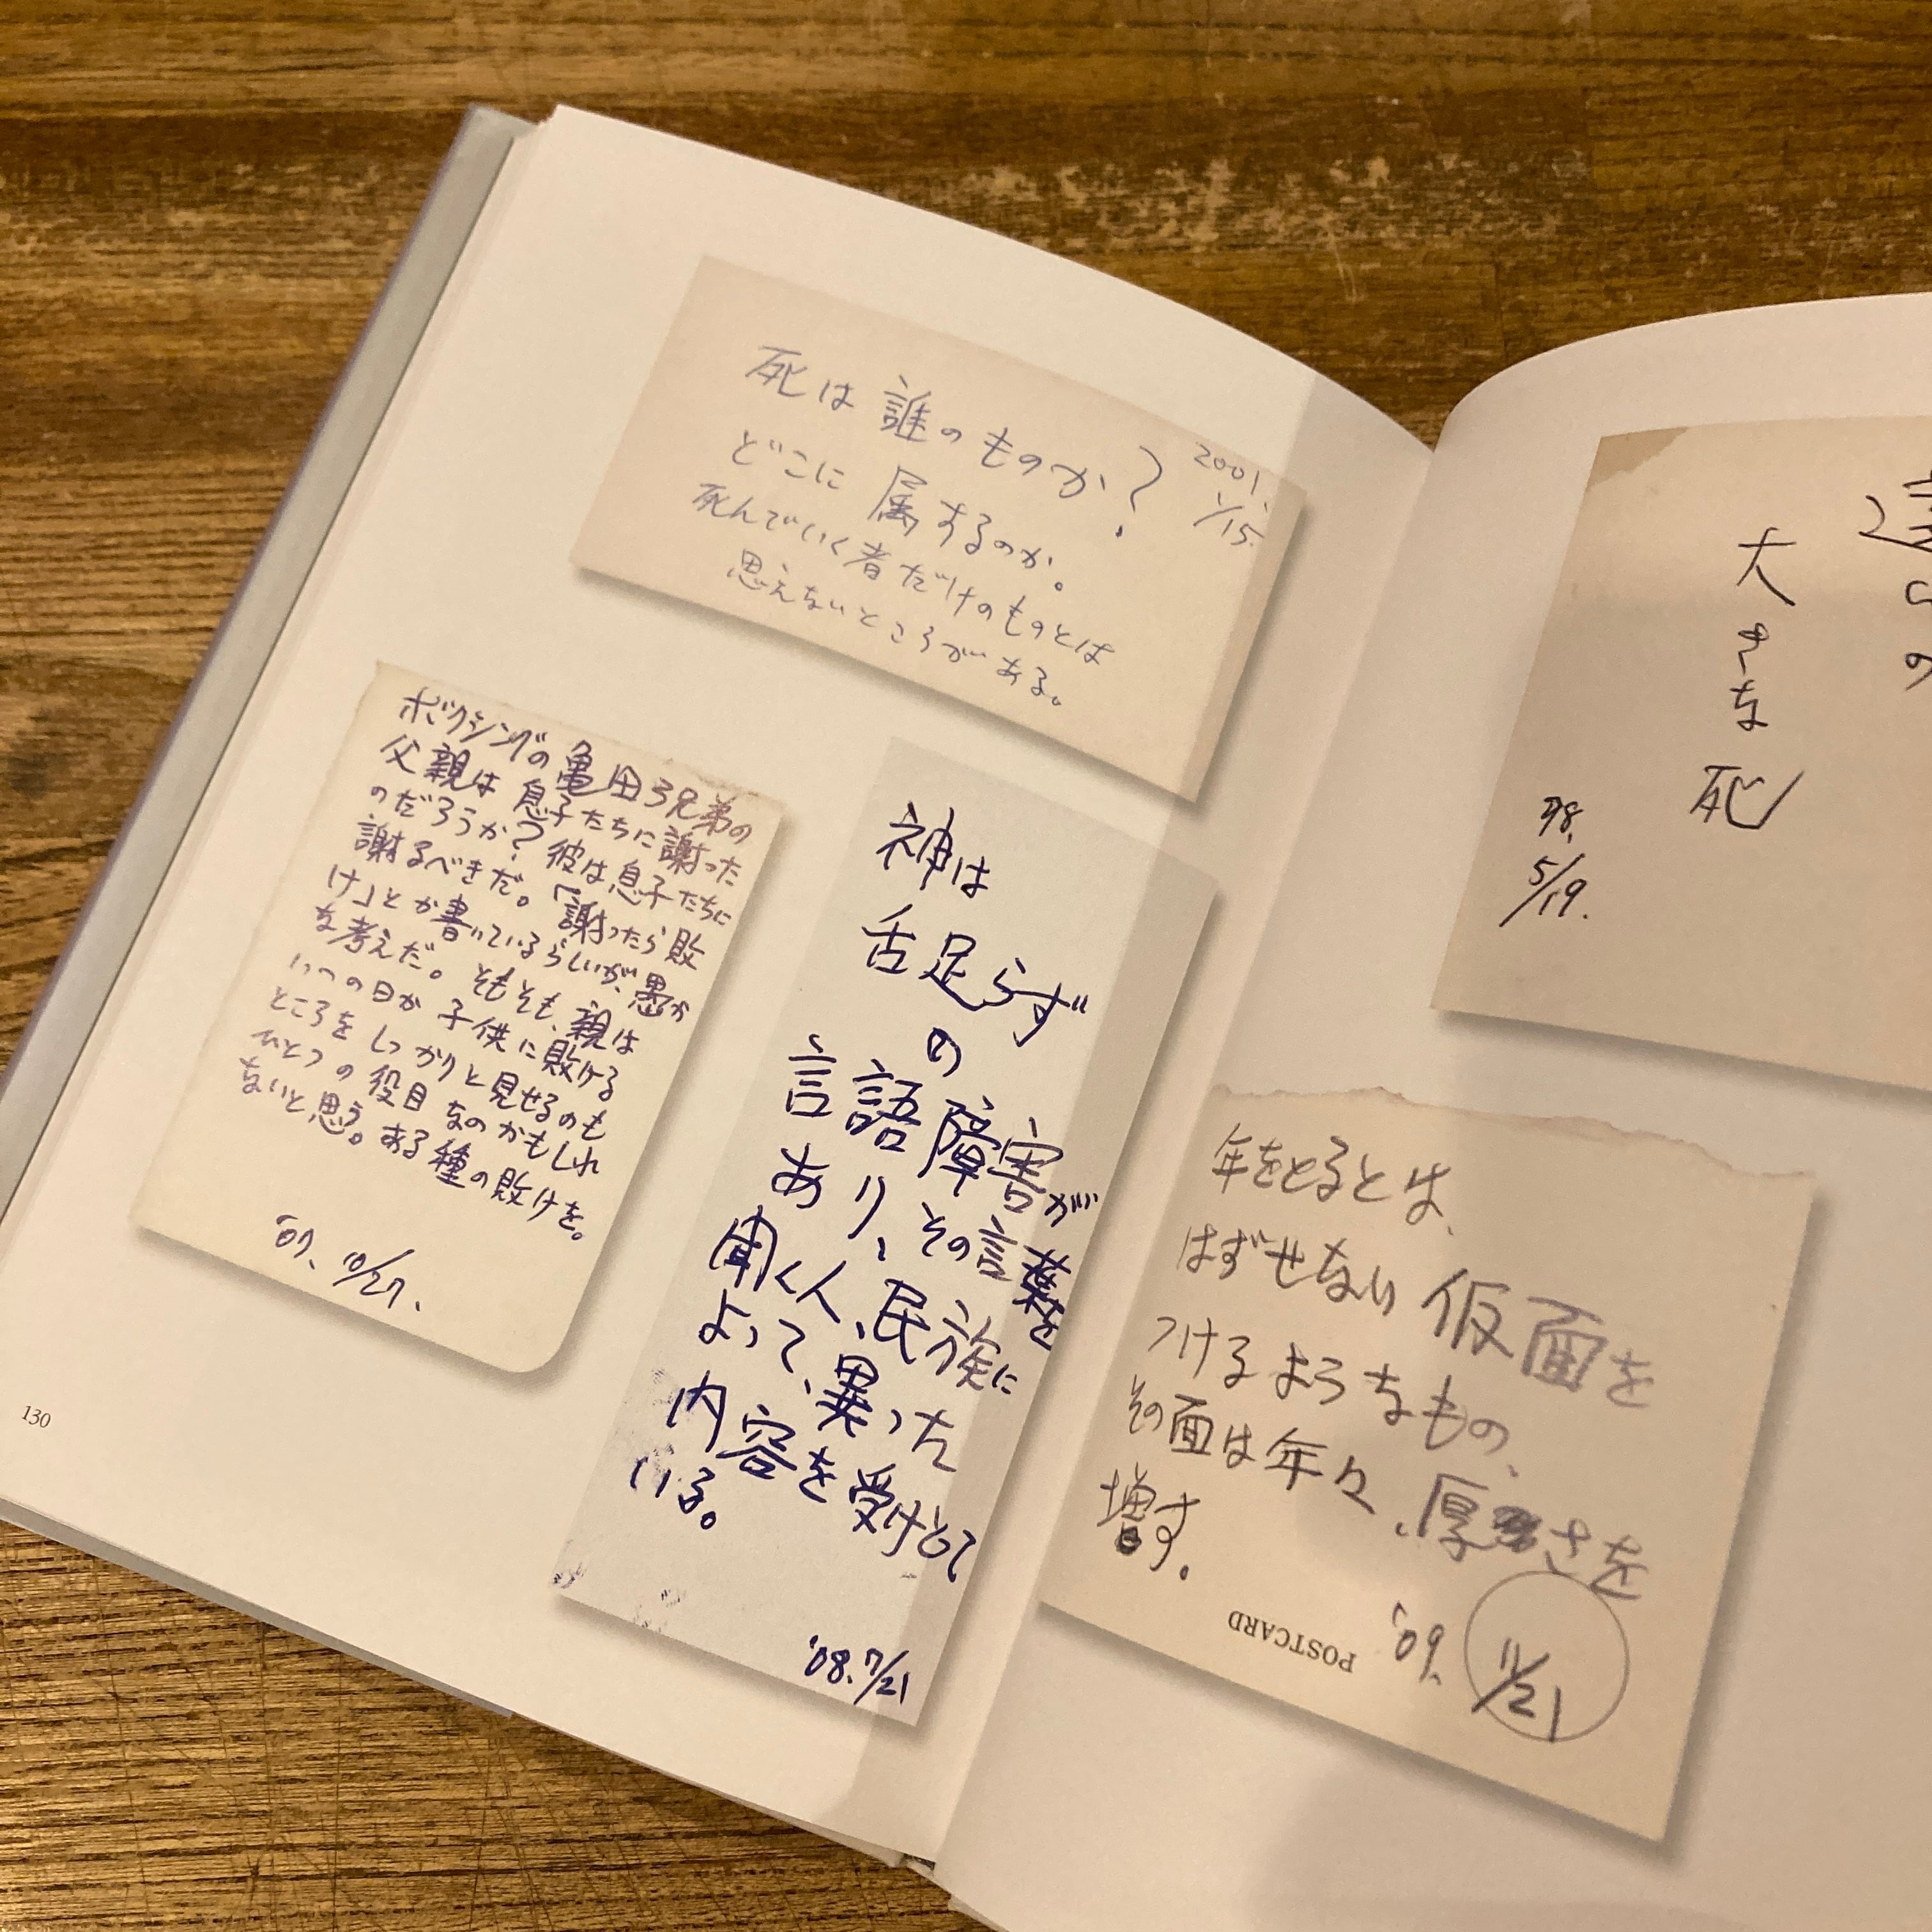 死は誰のものか?
どこに属するのか。
死んでいく者だけのものとは
思えないところがある。
2001.
1/15.
ボクシングの亀田3兄弟の
父親は息子たちに謝った
のだろうか?彼は息子たちに
謝るべきだ。「謝ったら敗
け」とか書いているらしいが、愚か
な考えだ。そもそも、親は
いつの日か子供に敗ける
ところをしっかりと見せるのも
ひとつの役目なのかもしれ
ないと思う。ある種の敗けを。
'07. 10/27.
神は
舌足らず
の
言語障害が
あり、その言葉を
聞く人、民族に
よって、異った
内容を受けとって
いる。
'08. 7/21
130
の
大きな死
98.
5/19.
年をとるとは、
はずせない仮面を
つけるようなもの、
その面は年々、厚さを
増す。
'09. 11/21
POSTCARD